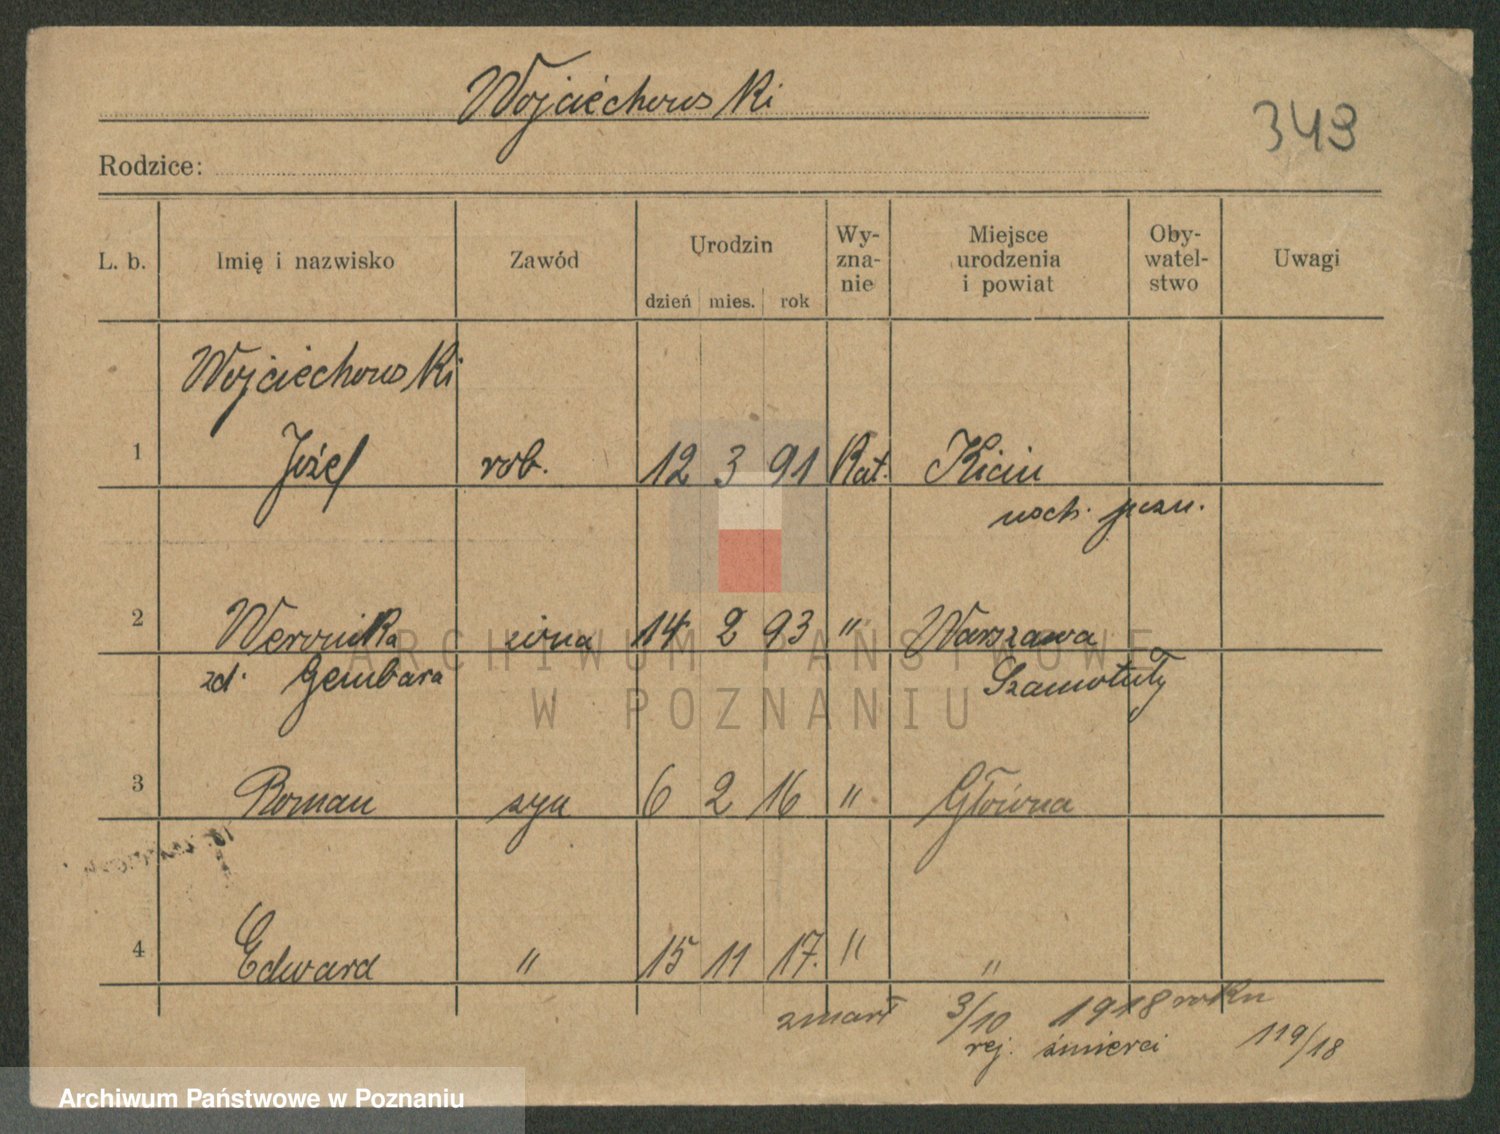 Wojciechowski
349
Rodzice:
L. b. Imię i nazwisko Zawód Urodzin dzień mies. rok Wy-zna-nie Miejsce urodzenia i powiat Oby-watel-stwo Uwagi
Wojciechowski
1 Józef rob. 12 3 91 Kat. Kicin
wsch. pozn.
2 Weronika żona 14 2 93 " Warszawa
zd. Gembara Szamotuły
3 Roman syn 6 2 16 " Główna
4 Edward " 15 11 17. " "
zmarł 3/10 1918 roku
rej. śmierci 119/18
ARCHIWUM PAŃSTWOWE
W POZNANIU
Archiwum Państwowe w Poznaniu